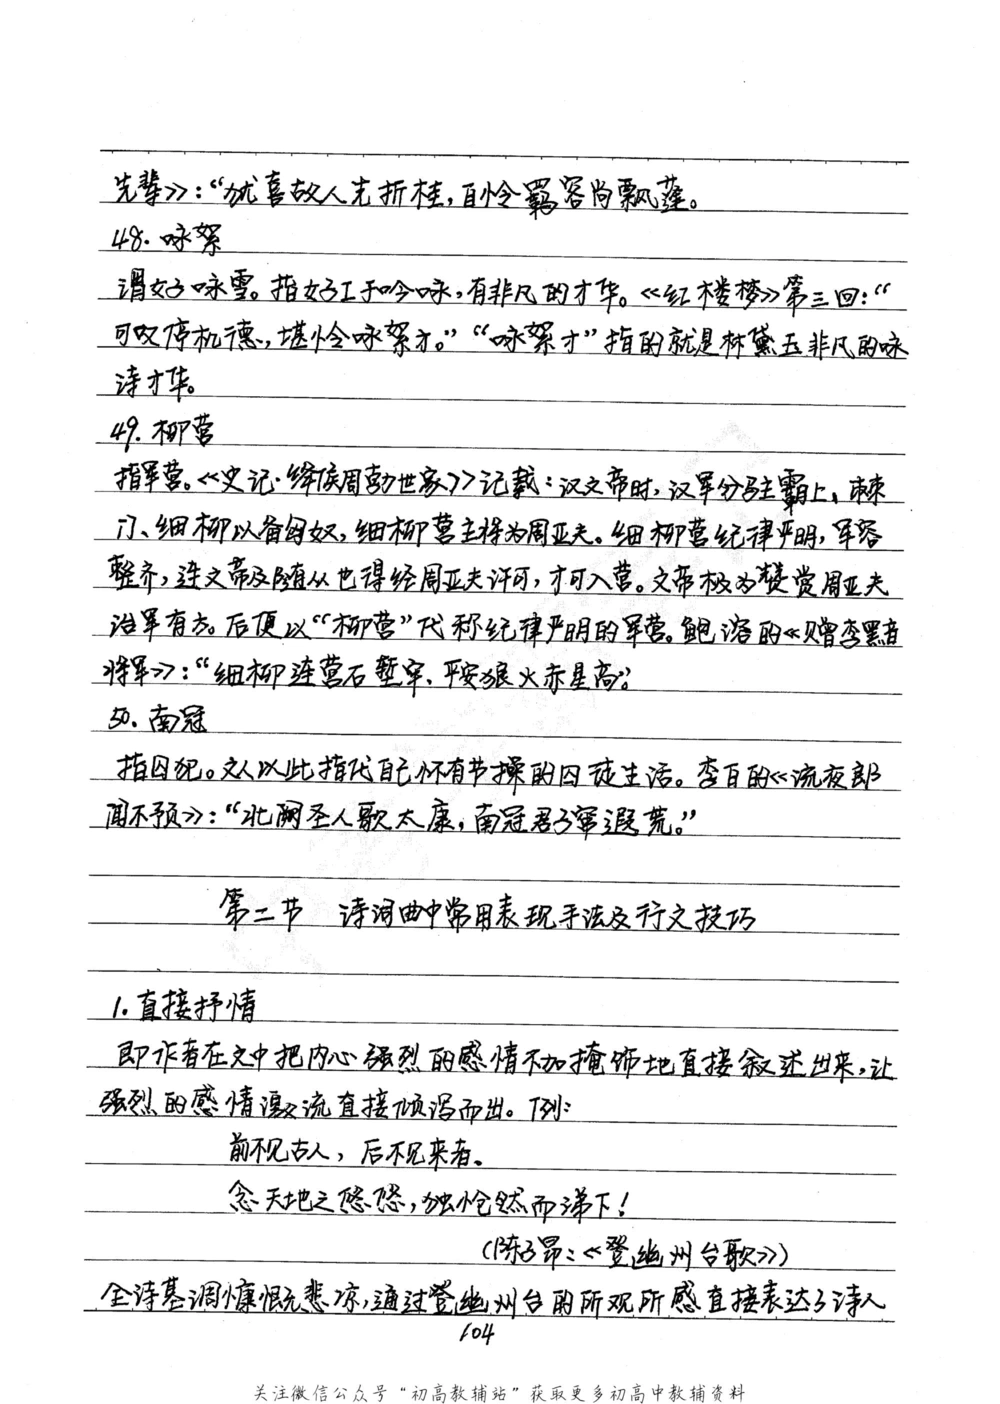 先辈》:“犹喜故人先折桂,自怜羁客尚飘蓬。
48. 咏絮
谓女子咏雪。指女子工于吟咏,有非凡的才华。《红楼梦》第三回:“
可叹停机德,堪怜咏絮才。”“咏絮才”指的就是林黛玉非凡的咏
诗才华。
49. 柳营
指军营。《史记·绛侯周勃世家》记载:汉文帝时,汉军分驻霸上、棘
门、细柳以备匈奴,细柳营主将为周亚夫。细柳营纪律严明,军容
整齐,连文帝及随从也得经周亚夫许可,才可入营。文帝极为赞赏周亚夫
治军有方。后便以“柳营”代称纪律严明的军营。鲍溶的《赠李黯
将军》:“细柳连营石堑牢,平安狼火赤星高”。
50. 南冠
指囚犯。文人以此指代自己怀有节操的囚徒生活。李白的《流夜郎
闻不预》:“北阙圣人歌太康,南冠君子窜遐荒。”
第二节 诗词曲中常用表现手法及行文技巧
1. 直接抒情
即作者在文中把内心强烈的感情不加掩饰地直接叙述出来,让
强烈的感情激流直接倾泻而出。例:
前不见古人,后不见来者。
念天地之悠悠,独怆然而涕下!
(陈子昂:《登幽州台歌》)
全诗基调慷慨悲凉,通过登幽州台的所观所感直接表达了诗人
104
关注微信公众号“初高教辅站”获取更多初高中教辅资料